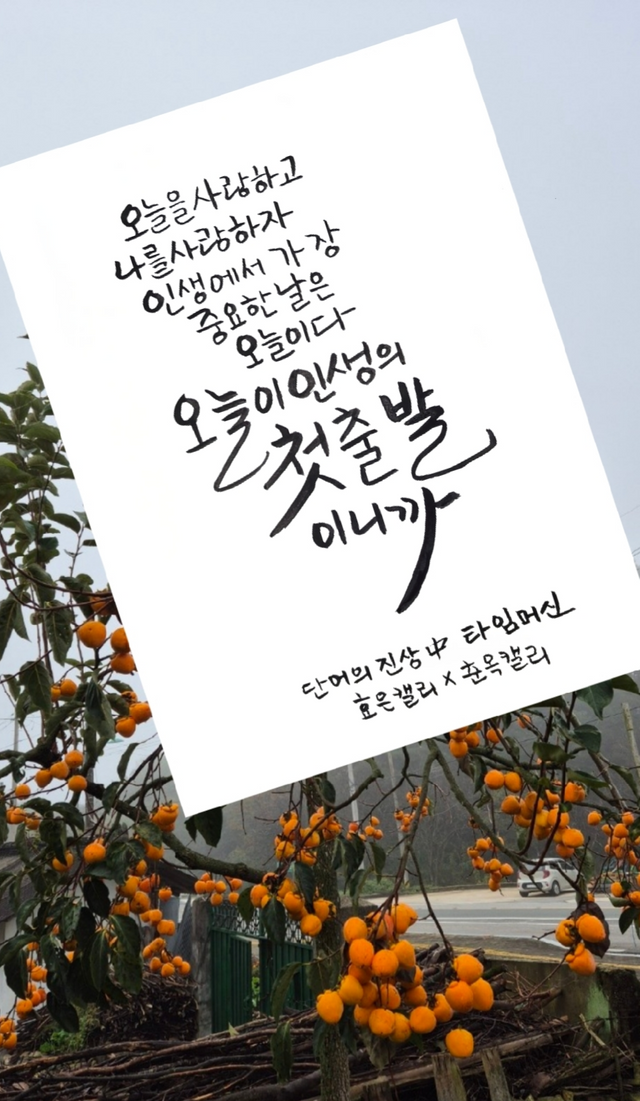 오늘을 사랑하고
나를 사랑하자
인생에서 가장
중요한 날은
오늘이다
오늘이 인생의
첫출발
이니까
단어의 진상 中 타임머신
효은캘리 x 춘옥캘리